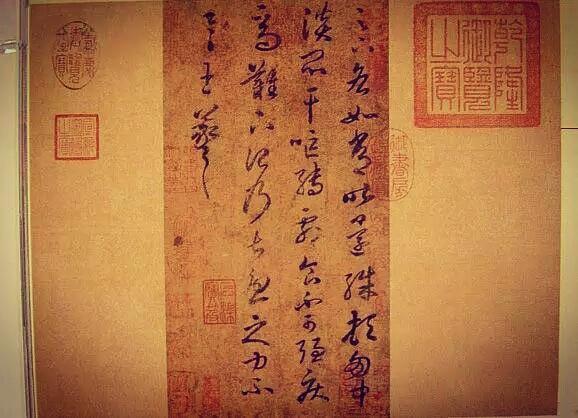 乾隆
御覽
之寶
足下各如常昨還殊頓匈中
淡悶干嘔轉劇食不可強疾
高難下治乃甚憂之力不
具王羲之